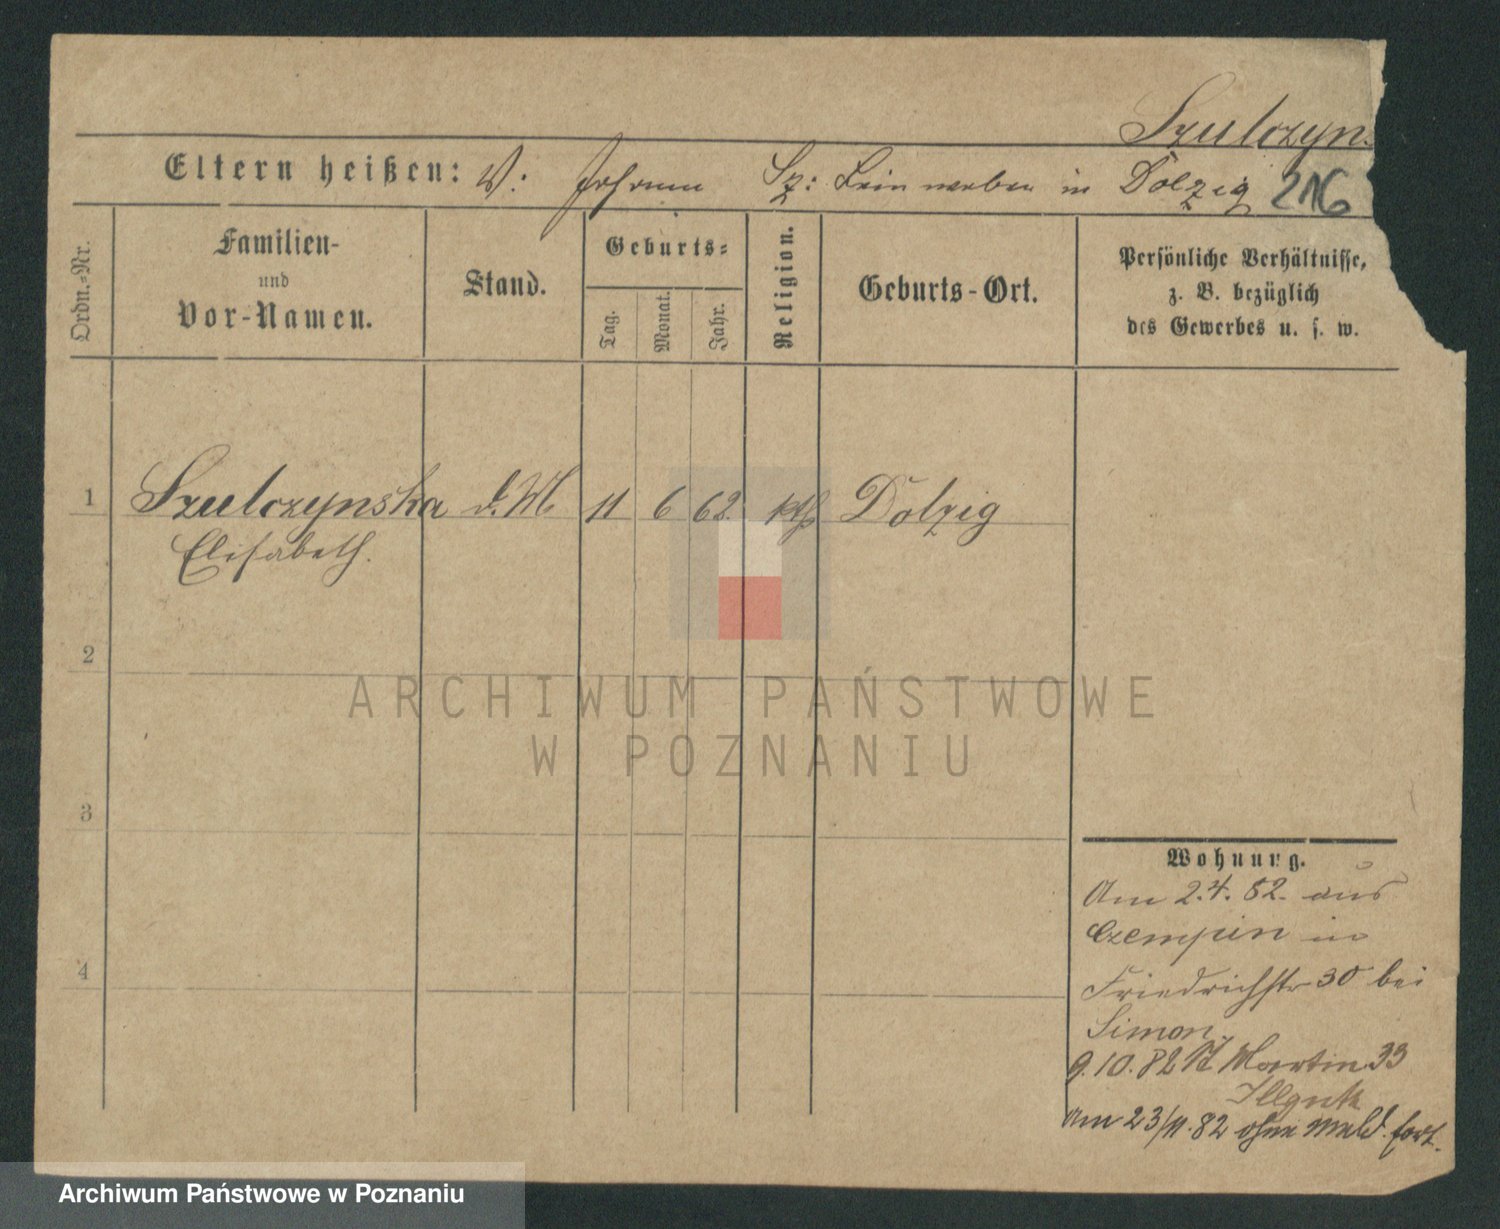 Szulczyn
Eltern heißen: V: Johann Sz: Leinweber in Dolzig 216
Ordn.-Nr.
Familien-
und
Vor-Namen.
Stand.
Geburts=
Tag.
Monat.
Jahr.
Religion.
Geburts-Ort.
Persönliche Verhältnisse,
z. B. bezüglich
des Gewerbes u. s. w.
1 Szulczynska d. M 11 6 62. kth Dolzig
Elisabeth.
2
3
4
Wohnung.
Am 2.4.82. aus
Czempin in
Friedrichstr 30 bei
Simon.
9.10.82 St Martin 33
Am 23/11.82 ohne Meld. fort.
ARCHIWUM PAŃSTWOWE
W POZNANIU
Archiwum Państwowe w Poznaniu